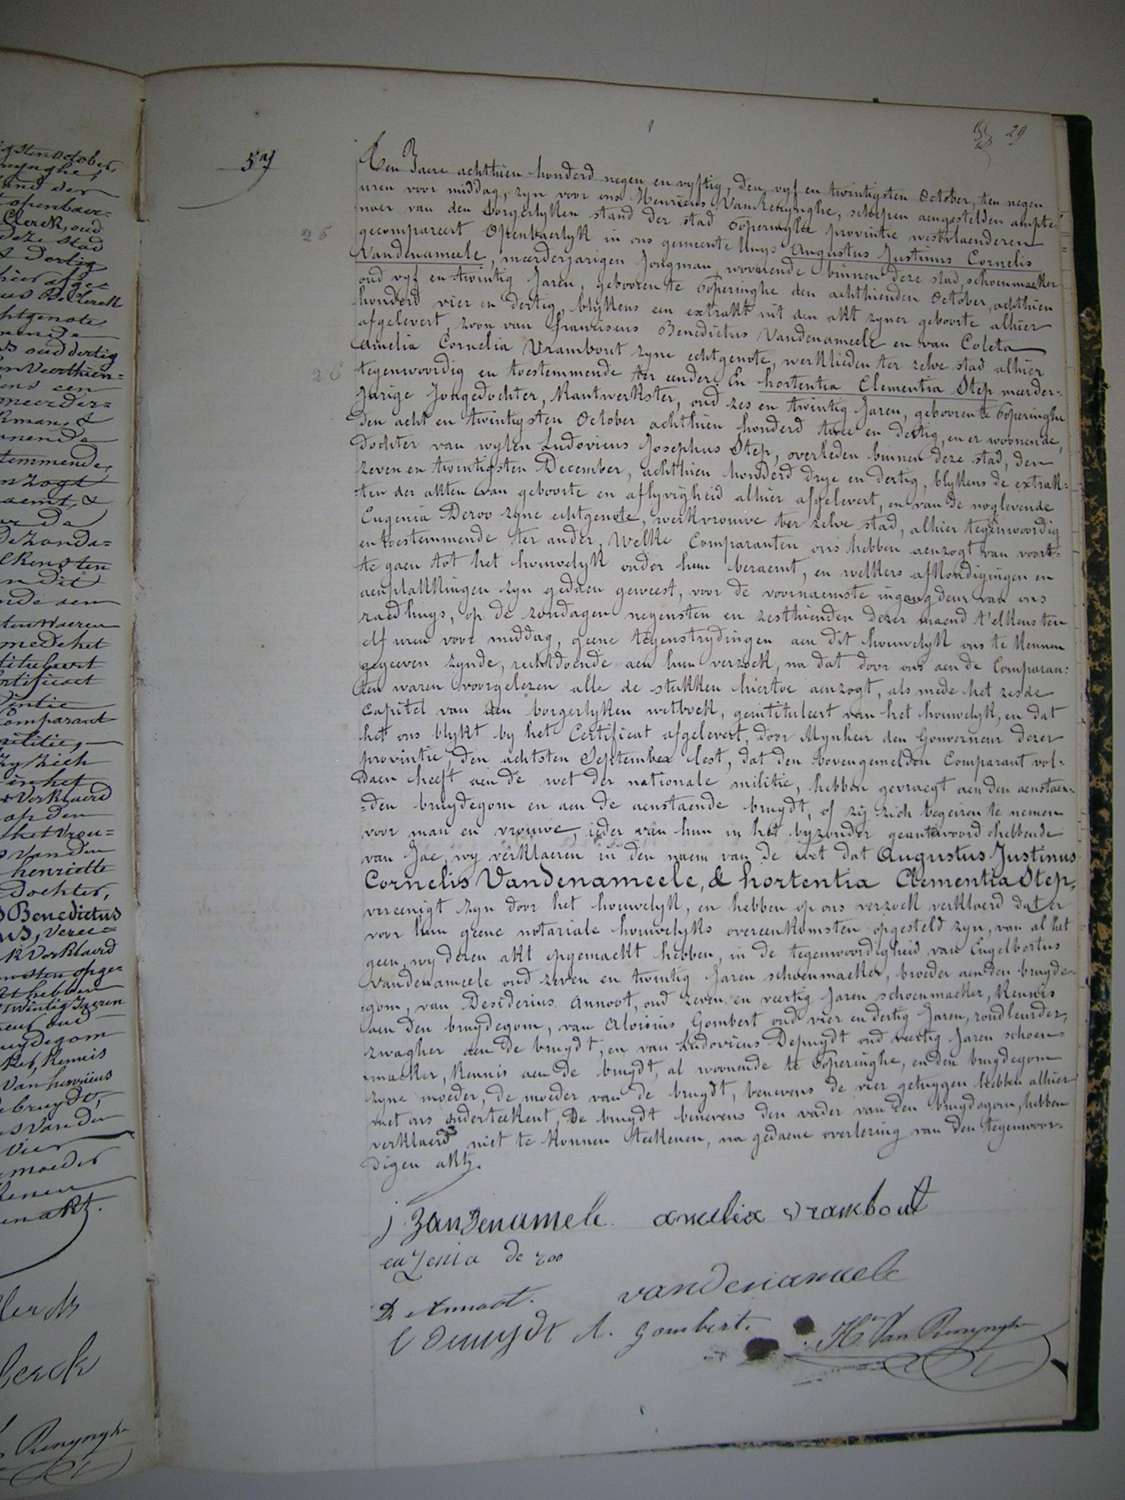 29
57
Ten Jaere achthien honderd negen en vyftig, den vyf en twintigsten October, ten negen
uren voor middag, zyn voor ons Henricus Vanrenynghe, schepen aengestelden ampte-
naer van den borgerlyken stand der stad Poperinghe provintie westvlaenderen
gecompareert openbaerlyk in ons gemeente huys Augustus Justinus Cornelis
Vandenameele, meerderjarigen jongman, woonende binnen deze stad, schoenmaeker
oud vyf en twintig Jaren, gebooren te Poperinghe den achthienden October, achthien
honderd vier en dertig, blykens een extrakt uit den akt zyner geboorte alhier
afgelevert, zoon van Franciscus Benedictus Vandenameele en van Coleta
Amelia Cornelia Vrambout zyne echtgenote, werklieden ter zelve stad alhier
tegenwoordig en toestemmende ter eendere En hortentia Clementia Step meerder-
jarige Jongedochter, kantwerkster, oud zes en twintig Jaren, gebooren te Poperinghe
den acht en twintigsten October achthien honderd twee en dertig, en er woonende,
Dochter van wylen Ludovicus Josephus Step, overleden binnen deze stad, den
zeven en twintigsten December, achthien honderd drye en dertig, blykens de extrak-
ten der akten van geboorte en aflyvigheid alhier afgelevert, en van de noglevende
Eugenia Deroo zyne echtgenote, werkvrouwe ter zelve stad, alhier tegenwoordig
en toestemmende ter ander, Welke Comparanten ons hebben aenzogt van voort
te gaen tot het houwelyk onder hun beraemt, en welkers afkondigingen en
aenplakkingen zyn gedaen geweest, voor de voornaemste ingangdeur van ons
raedhuys, op de zondagen negensten en zesthienden dezer maend t'elkens ten
elf uren voor middag, geene tegenstrydingen aen dit houwelyk ons te kennen
gegeven zynde, rechtdoende aen hun verzoek, na dat door ons aen de Comparan-
ten waren voorgelezen alle de stukken hiertoe aenzogt, als mede het zesde
Capitel van den borgerlyken wetboek, geintituleert van het houwelyk, en dat
het ons blykt by het Certificat afgelevert, door Mynheer den Gouverneur dezer
provintie, den achtsten September lest, dat den bovengemelden Comparant vol-
daen heeft aen de wet der nationale militie, hebben gevraegt aen den aenstaen-
den bruydegom en aen de aenstaende bruydt, of zy zich begeiren te nemen
voor man en vrouwe, ieder van hun in het byzonder geantwoord hebbende
van Jae, wy verklaeren in den naem van de wet dat Augustus Justinus
Cornelis Vandenameele, & hortentia Clementia Step,
vereenigt zyn door het houwelyk, en hebben op ons verzoek verklaerd dat er
voor hun geene notariale houwelyks overeenkomsten opgesteld zyn, van al het
geen, wy dezen akt opgemaekt hebben, in de tegenwoordigheid van Engelbertus
Vandenameele oud zeven en twintig Jaren schoenmaeker, broeder aen den bruyde-
gom, van Desiderius Annoot, oud zeven en veertig Jaren schoenmaeker, kennis
aen den bruydegom, van Aloisius Gombert oud vier en dertig Jaren, rondleurder,
zwagher aen de bruydt, en van Ludovicus Depuydt oud veertig Jaren schoen-
maeker, kennis aen de bruydt, al woonende te Poperinghe, en den bruydegom
zyne moeder, de moeder van de bruydt, benevens de vier getuygen hebben alhier
met ons onderteekent, De bruydt benevens den vader van den bruydegom, hebben
verklaerd niet te konnen teekenen, na gedaene overlezing van den tegenwoor-
digen akt.
j Vandenamele amelia vrambout
eugenia de roo
D Annoot. vandenameele
l Depuydt A. Gombert. Hri Van Renynghe